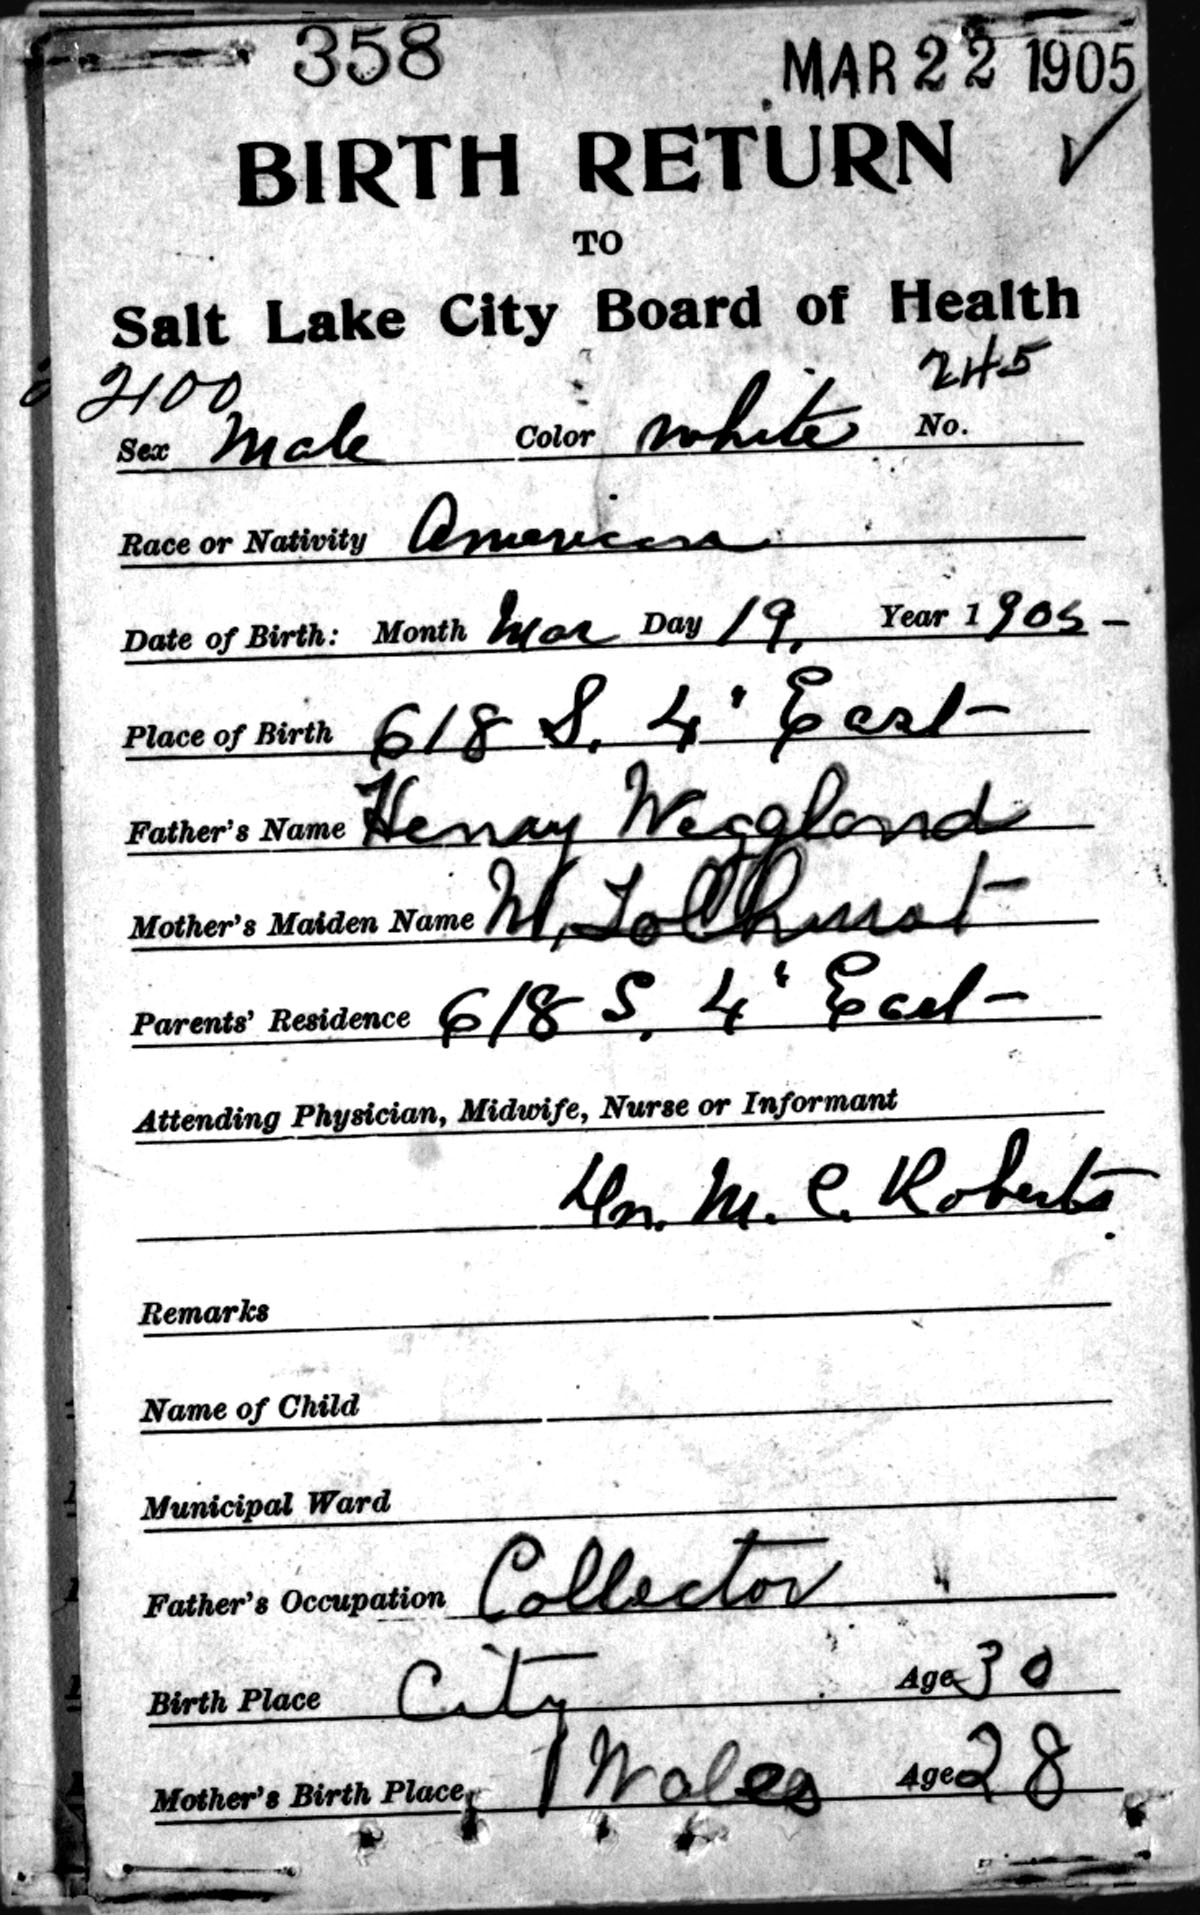 358 MAR 22 1905
BIRTH RETURN
TO
Salt Lake City Board of Health
2100 245
Sex Male Color white No.
Race or Nativity American
Date of Birth: Month Mar Day 19, Year 1905-
Place of Birth 618 S. 4' East
Father's Name Henry Weggland
Mother's Maiden Name M, Tolhurst
Parents' Residence 618 S. 4' East
Attending Physician, Midwife, Nurse or Informant
Dr. M. C. Roberts
Remarks
Name of Child
Municipal Ward
Father's Occupation Collector
Birth Place City Age 30
Mother's Birth Place Wales Age 28